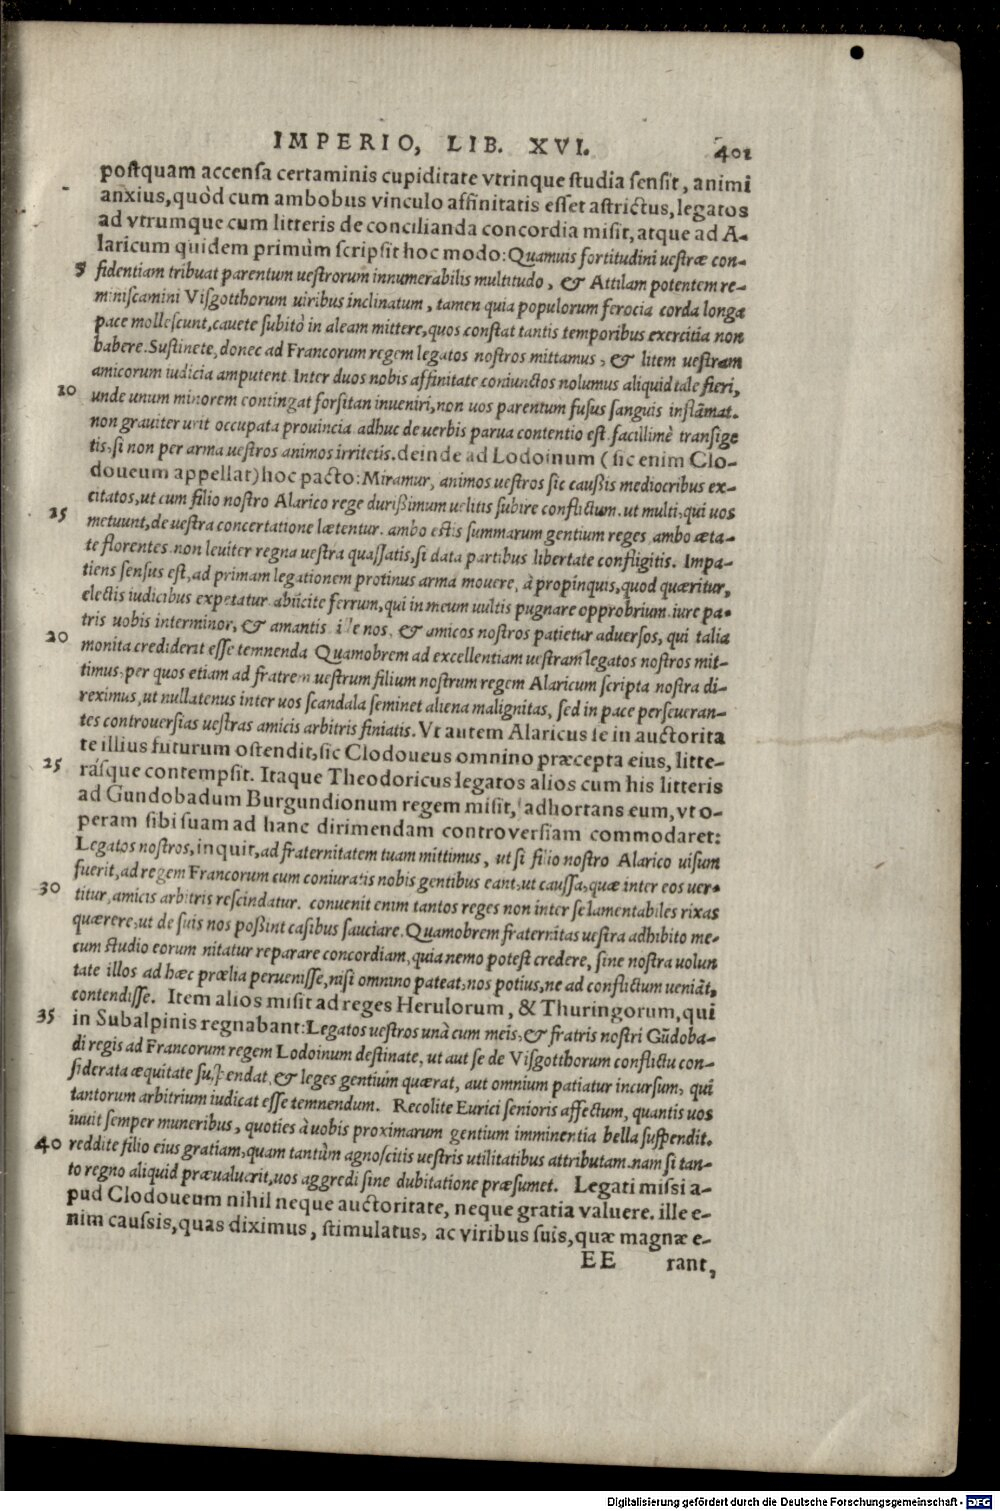 IMPERIO, LIB. XVI. 401
postquam accensa certaminis cupiditate vtrinque studia sensit, animi
anxius, quòd cum ambobus vinculo affinitatis esset astrictus, legatos
ad vtrumque cum litteris de concilianda concordia misit, atque ad A-
laricum quidem primùm scripsit hoc modo: Quamuis fortitudini uestræ con-
5 fidentiam tribuat parentum uestrorum innumerabilis multitudo, & Attilam potentem re-
miniscamini Visgotthorum uiribus inclinatum, tamen quia populorum ferocia corda longa
pace mollescunt, cauete subitò in aleam mittere, quos constat tantis temporibus exercitia non
habere. Sustinete, donec ad Francorum regem legatos nostros mittamus, & litem uestram
amicorum iudicia amputent. Inter duos nobis affinitate coniunctos nolumus aliquid tale fieri,
20 unde unum minorem contingat forsitan inueniri, non uos parentum fusus sanguis inflāmat.
non grauiter urit occupata prouincia. adhuc de uerbis parua contentio est. facillimè transige
tis, si non per arma uestros animos irritetis. deinde ad Lodoinum (sic enim Clo-
doueum appellat) hoc pacto: Miramur, animos uestros sic caußis mediocribus ex-
citatos, ut cum filio nostro Alarico rege durißimum uelitis subire conflictum. ut multi, qui uos
25 metuunt, de uestra concertatione lætentur. ambo estis summarum gentium reges, ambo æta-
te florentes. non leuiter regna uestra quassatis, si data partibus libertate confligitis. Impa-
tiens sensus est, ad primam legationem protinus arma mouere, à propinquis, quod quæritur,
electis iudicibus expetatur. abiicite ferrum, qui in meum uultis pugnare opprobrium. iure pa-
tris uobis interminor, & amantis. ille nos, & amicos nostros patietur aduersos, qui talia
20 monita crediderit esse temnenda. Quamobrem ad excellentiam uestram legatos nostros mit-
timus, per quos etiam ad fratrem uestrum filium nostrum regem Alaricum scripta nostra di-
reximus, ut nullatenus inter uos scandala seminet aliena malignitas, sed in pace perseueran-
tes controuersias uestras amicis arbitris finiatis. Vt autem Alaricus se in auctorita
te illius futurum ostendit, sic Clodoueus omnino præcepta eius, litte-
25 rásque contempsit. Itaque Theodoricus legatos alios cum his litteris
ad Gundobadum Burgundionum regem misit, adhortans eum, vt o-
peram sibi suam ad hanc dirimendam controversiam commodaret:
Legatos nostros, inquit, ad fraternitatem tuam mittimus, ut si filio nostro Alarico uisum
fuerit, ad regem Francorum cum coniuratis nobis gentibus eant, ut caussa, quæ inter eos uer-
30 titur, amicis arbitris rescindatur. conuenit enim tantos reges non inter se lamentabiles rixas
quærere, ut de suis nos poßint casibus sauciare. Quamobrem fraternitas uestra adhibito me-
cum studio eorum nitatur reparare concordiam, quia nemo potest credere, sine nostra uolun
tate illos ad hæc prælia peruenisse, nisi omnino pateat, nos potius, ne ad conflictum ueniāt,
contendisse. Item alios misit ad reges Herulorum, & Thuringorum, qui
35 in Subalpinis regnabant: Legatos uestros unà cum meis, & fratris nostri Gūdoba-
di regis ad Francorum regem Lodoinum destinate, ut aut se de Visgotthorum conflictu con-
siderata æquitate suspendat, & leges gentium quærat, aut omnium patiatur incursum, qui
tantorum arbitrium iudicat esse temnendum. Recolite Eurici senioris affectum, quantis uos
iuuit semper muneribus, quoties à uobis proximarum gentium imminentia bella suspendit.
40 reddite filio eius gratiam, quam tantùm agnoscitis uestris utilitatibus attributam. nam si tan-
to regno aliquid præualuerit, uos aggredi sine dubitatione præsumet. Legati missi a-
pud Clodoueum nihil neque auctoritate, neque gratia valuere. ille e-
nim caussis, quas diximus, stimulatus, ac viribus suis, quæ magnæ e-
EE rant,
Digitalisierung gefördert durch die Deutsche Forschungsgemeinschaft - DFG